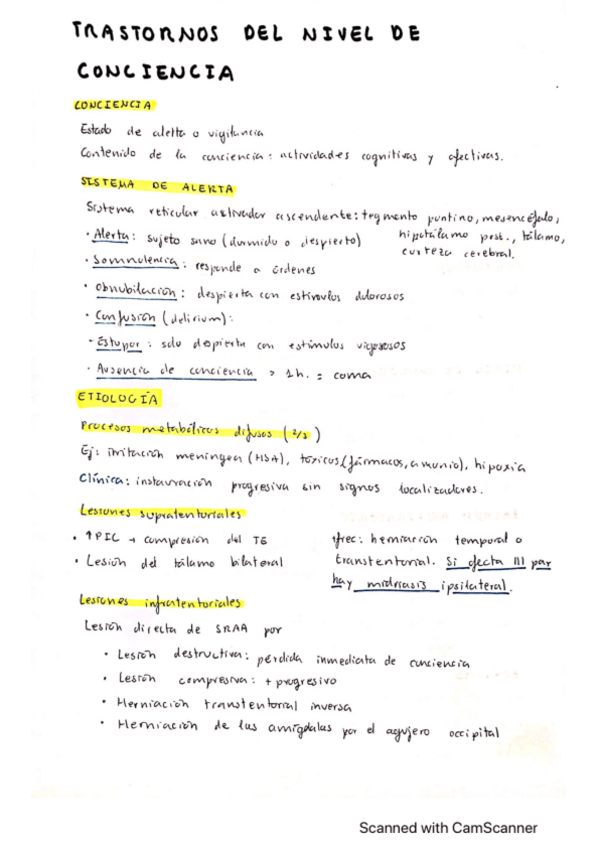 TRASTORNOS DEL NIVEL DE
CONCIENCIA
CONCIENCIA
Estado de alerta o vigilancia
Contenido de la conciencia: actividades cognitivas y afectivas.
SISTEMA DE ALERTA
Sistema reticular activador ascendente: tegmento pontino, mesencéfalo,
hipotálamo post., tálamo,
corteza cerebral.
· Alerta: sujeto sano (dormido o despierto)
· Somnolencia: responde a órdenes
· Obnubilación: despierta con estímulos dolorosos
· Confusión (delirium):
· Estupor: solo despierta con estímulos vigorosos
· Ausencia de conciencia > 1h. = coma
ETIOLOGÍA
Procesos metabólicos difusos (2/3)
Ej: irritación meníngea (HSA), tóxicos (fármacos, amonio), hipoxia
Clínica: instauración progresiva sin signos localizadores.
Lesiones supratentoriales
· ↑PIC → compresión del TE
· Lesión del tálamo bilateral
↑frec: herniación temporal o
transtentorial. Si afecta III par
hay midriasis ipsilateral.
Lesiones infratentoriales
Lesión directa de SRAA por
· Lesión destructiva: pérdida inmediata de conciencia
· Lesión compresiva: + progresivo
· Herniación transtentorial inversa
· Herniación de las amígdalas por el agujero occipital
Scanned with CamScanner